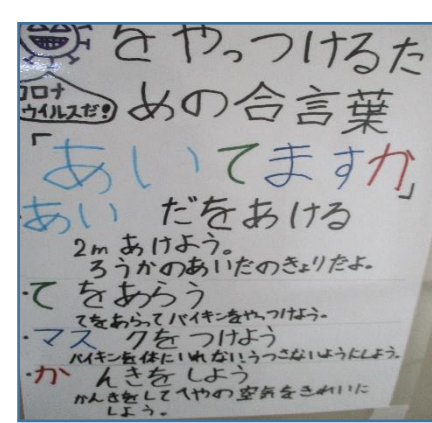 をやっつけるた
コロナ
ウイルスだ!
めの合言葉
「あいてますか」
・あい だをあける
2mあけよう。
ろうかのあいだのきょりだよ。
・て をあらう
てをあらってバイキンをやっつけよう。
・マス クをつけよう
バイキンを体にいれない、うつさないようにしよう。
・か んきをしよう
かんきをしてへやの空気をきれいに
しよう。